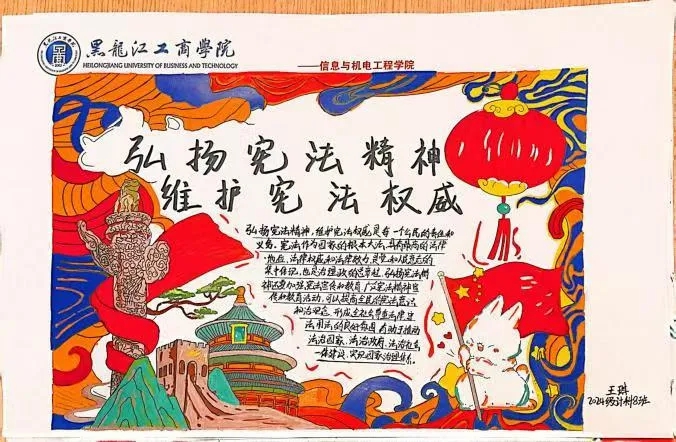 黑龍江工商學院
HEILONGJIANG UNIVERSITY OF BUSINESS AND TECHNOLOGY
——信息与机电工程学院
弘扬宪法精神
维护宪法权威
弘扬宪法精神,维护宪法权威,是每一个公民的责任和
义务。宪法作为国家的根本大法,具有最高的法律
地位、法律权威和法律效力,是党和人民意志的
集中体现,也是治国理政的总章程。弘扬宪法精
神还要加强宪法宣传和教育,广泛宪法精神宣
传和教育活动,可以提高全民的宪法意识
和法治观念,形成全社会尊重法律、遵
法用法的良好氛围,有助于推动
法治国家、法治政府、法治社会
一体建设,实现国家治理体系。
2024级计科8班